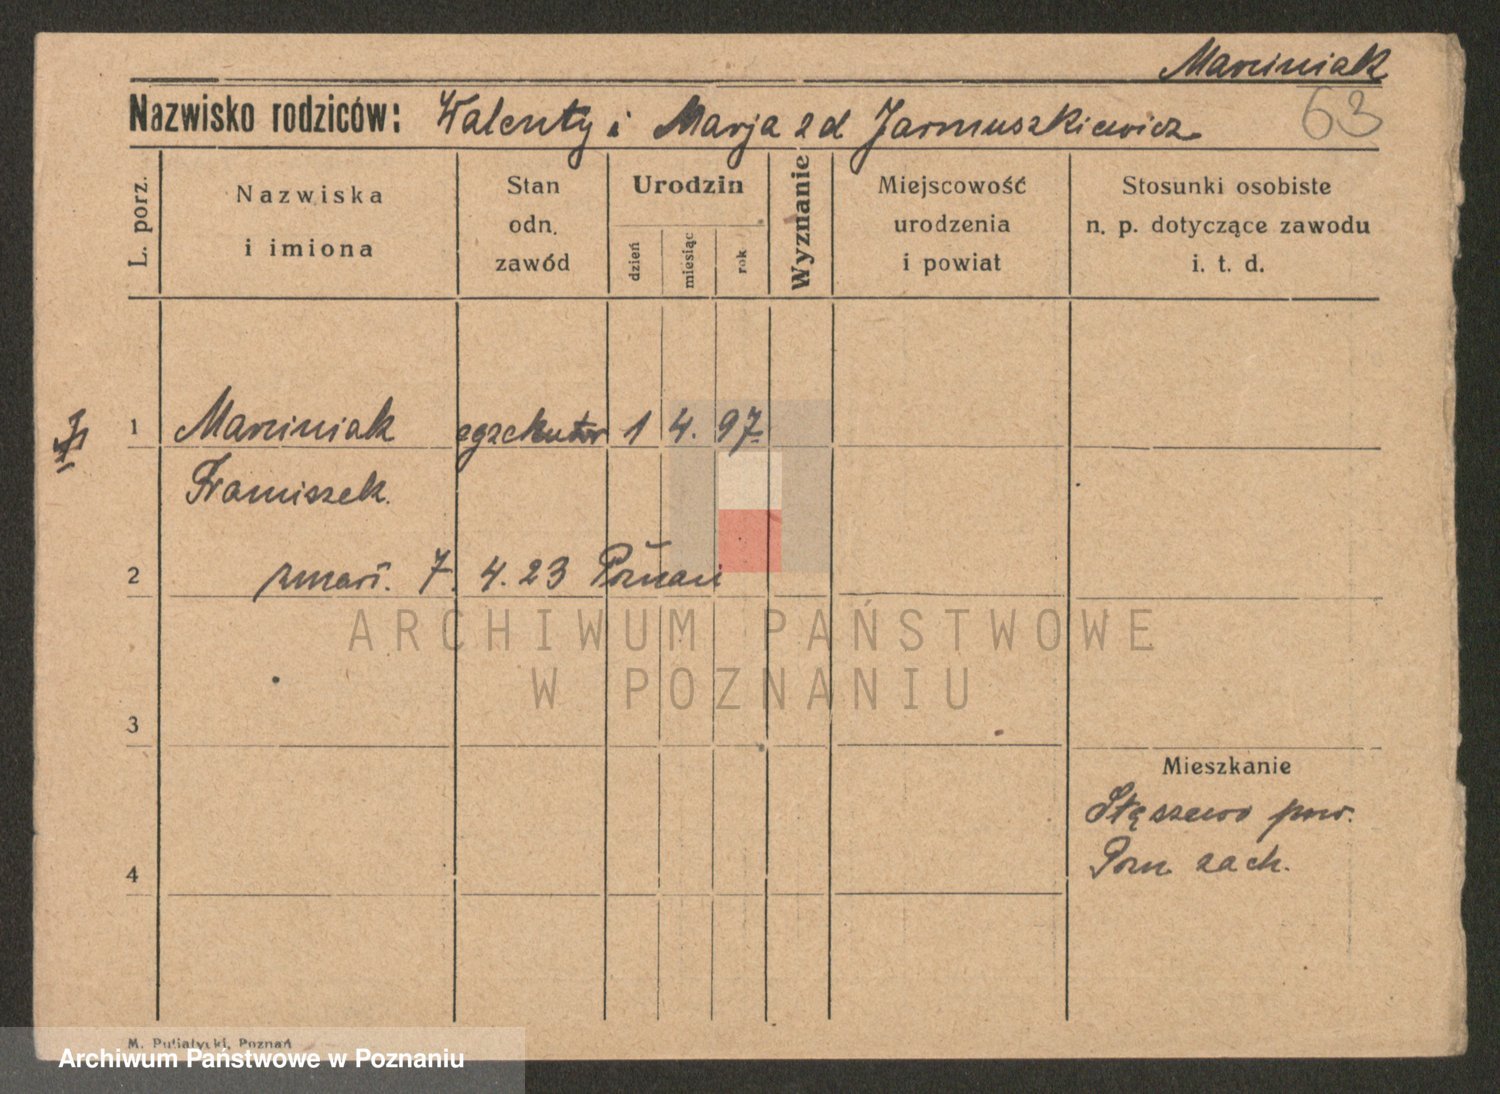 Marciniak
63
Nazwisko rodziców: Walenty i Marja z d Jarmuszkiewicz
L. porz.
Nazwiska
i imiona
Stan
odn.
zawód
Urodzin
dzień
miesiąc
rok
Wyznanie
Miejscowość
urodzenia
i powiat
Stosunki osobiste
n. p. dotyczące zawodu
i. t. d.
1 Marciniak egzekutor 1 4. 97
Franciszek.
2 zmarł. 7. 4. 23 Poznań
ARCHIWUM PAŃSTWOWE
W POZNANIU
3
Mieszkanie
Stęszewo pow.
Pozn zach.
4
M. Putiatycki, Poznań
Archiwum Państwowe w Poznaniu